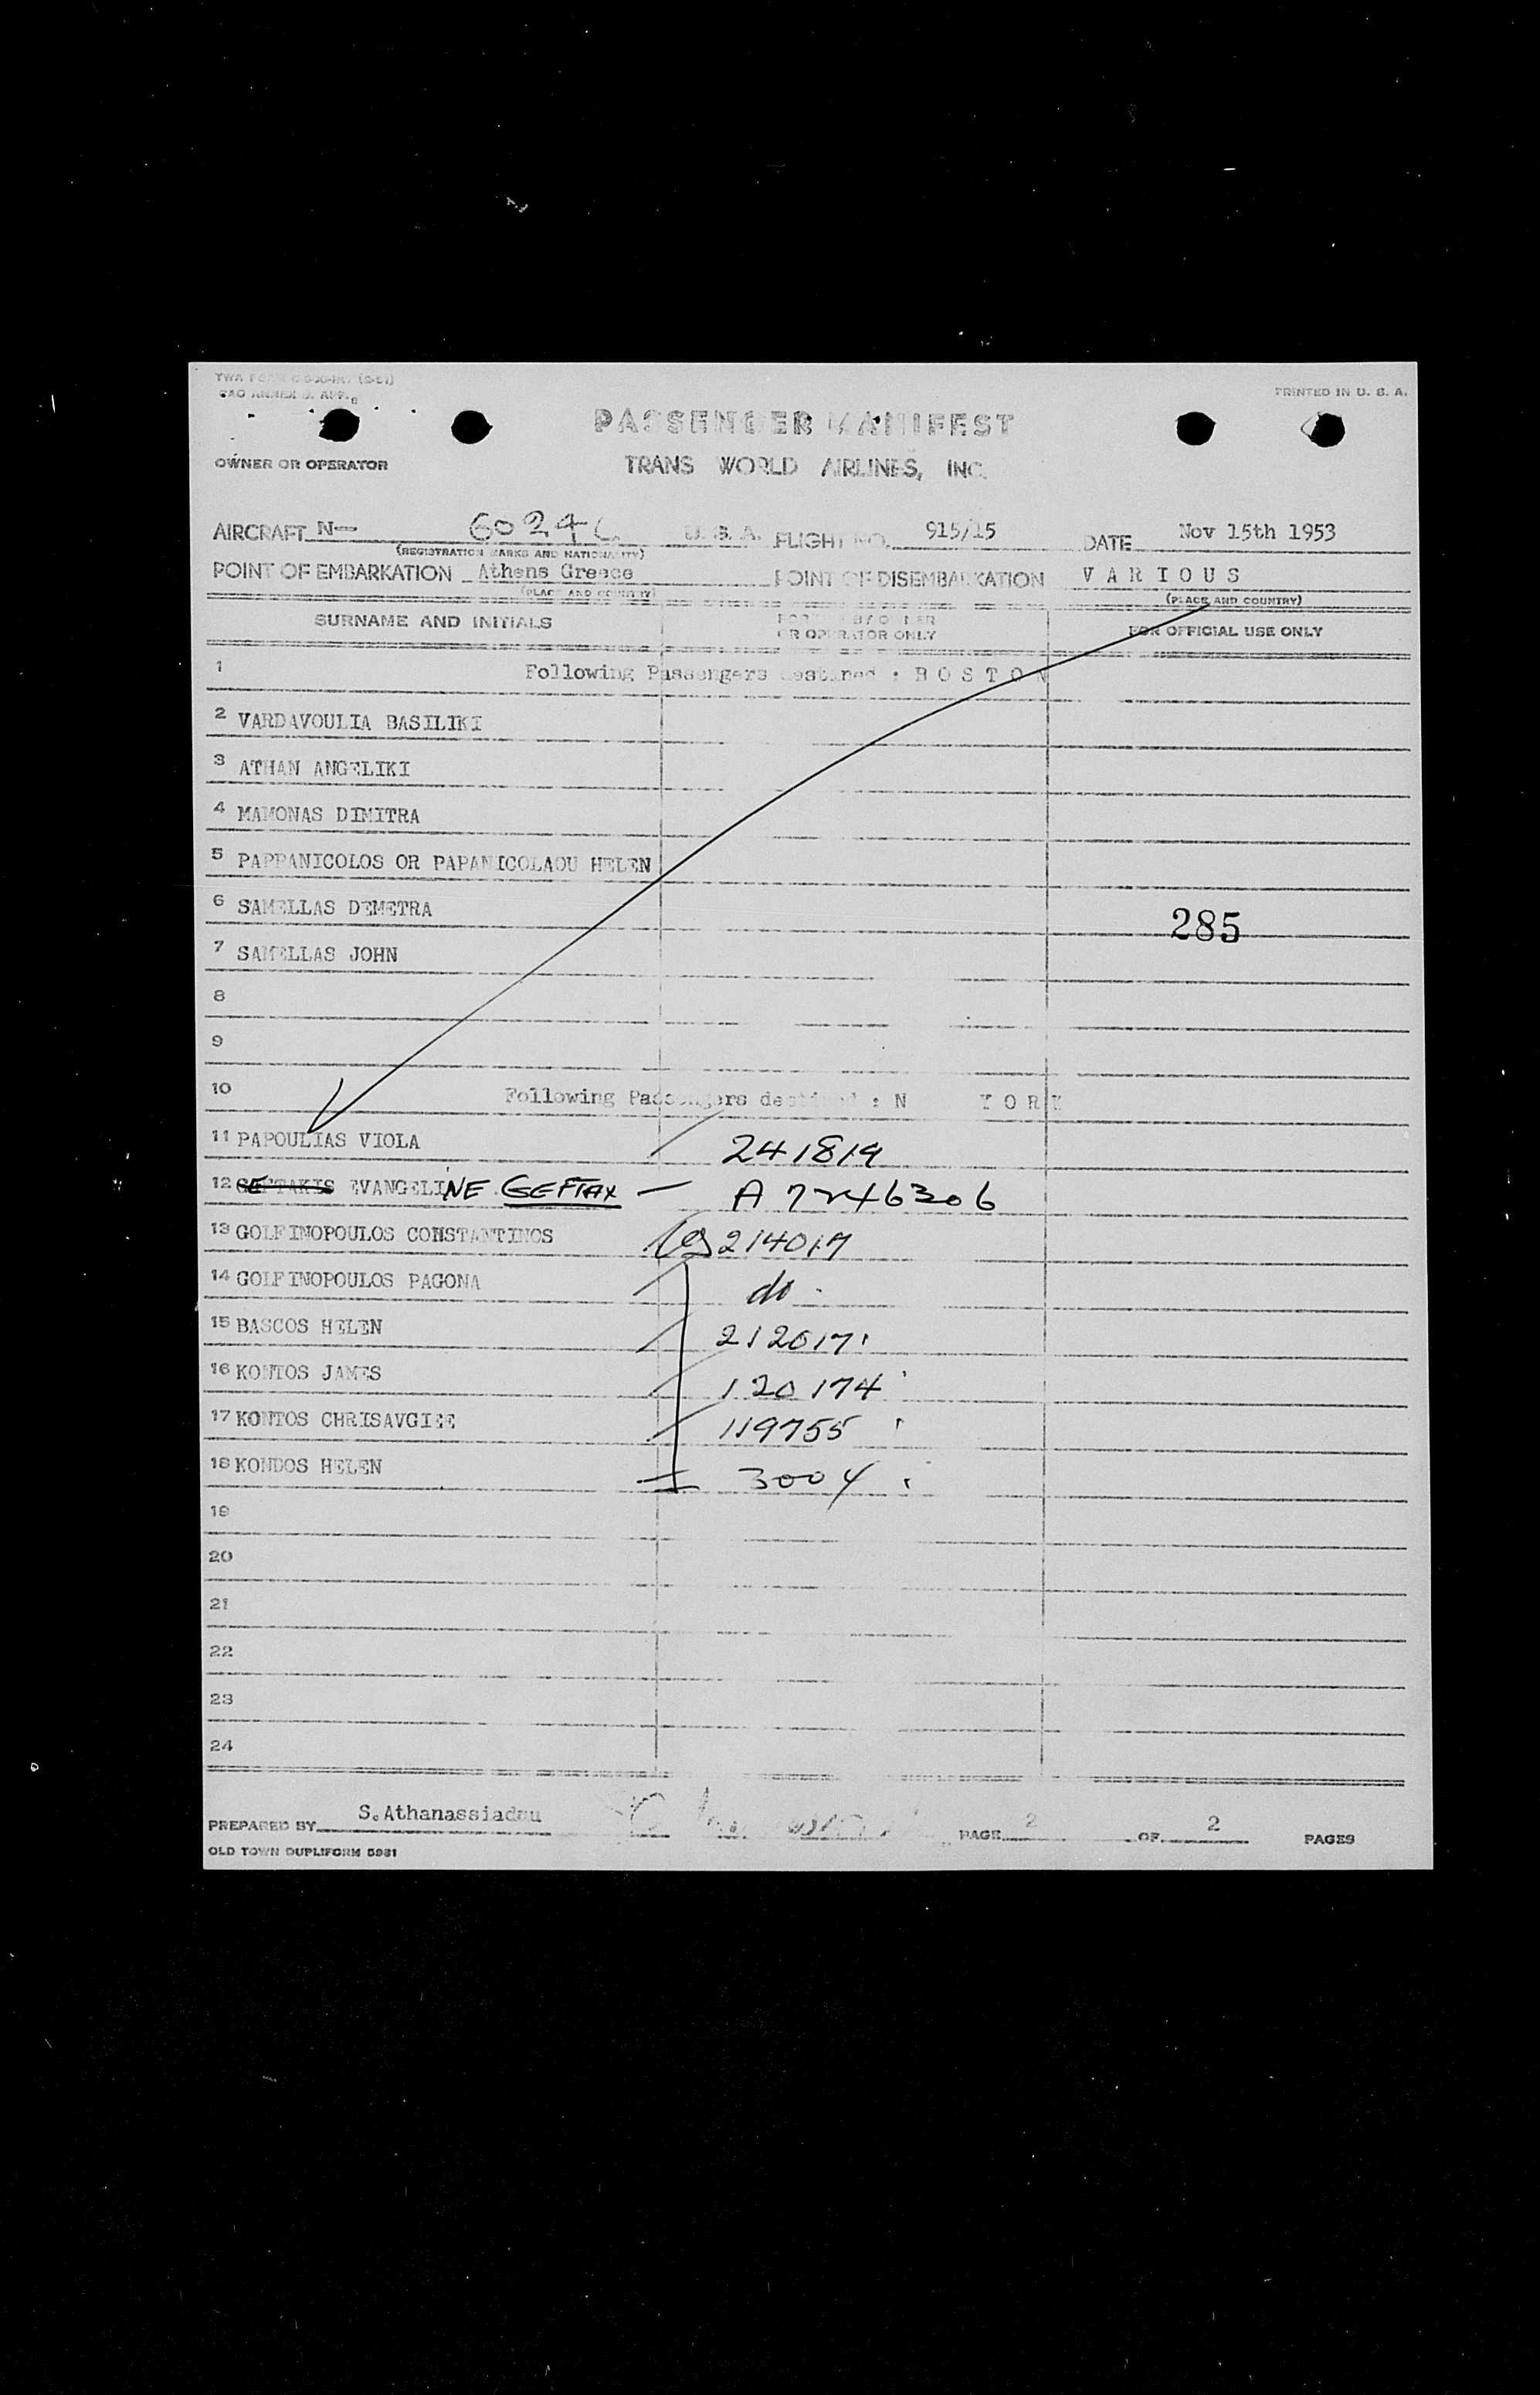 PRINTED IN U. S. A.
PASSENGER MANIFEST
OWNER OR OPERATOR TRANS WORLD AIRLINES, INC.
AIRCRAFT N— 6024C U. S. A. FLIGHT NO. 915/15 DATE Nov 15th 1953
(REGISTRATION MARKS AND NATIONALITY)
POINT OF EMBARKATION Athens Greece POINT OF DISEMBARKATION V A R I O U S
(PLACE AND COUNTRY) (PLACE AND COUNTRY)
SURNAME AND INITIALS FOR USE BY OWNER OR OPERATOR ONLY FOR OFFICIAL USE ONLY
1 Following Passengers destined : B O S T O N
2 VARDAVOULIA BASILIKI
3 ATHAN ANGELIKI
4 MAMONAS DIMITRA
5 PAPPANICOLOS OR PAPANICOLAOU HELEN
6 SAMELLAS DEMETRA 285
7 SAMELLAS JOHN
8
9
10 Following Passengers destined : N Y O R K
11 PAPOULIAS VIOLA 241819
12 GEFTAKIS EVANGELINE GEFTAX — A 7246306
13 GOLFINOPOULOS CONSTANTINOS 214017
14 GOLFINOPOULOS PAGONA do
15 BASCOS HELEN 212017
16 KONTOS JAMES 120174
17 KONTOS CHRISAVGIEE 119755
18 KONDOS HELEN 3004
19
20
21
22
23
24
PREPARED BY S.Athanassiadou PAGE 2 OF 2 PAGES
OLD TOWN DUPLIFORM 5981